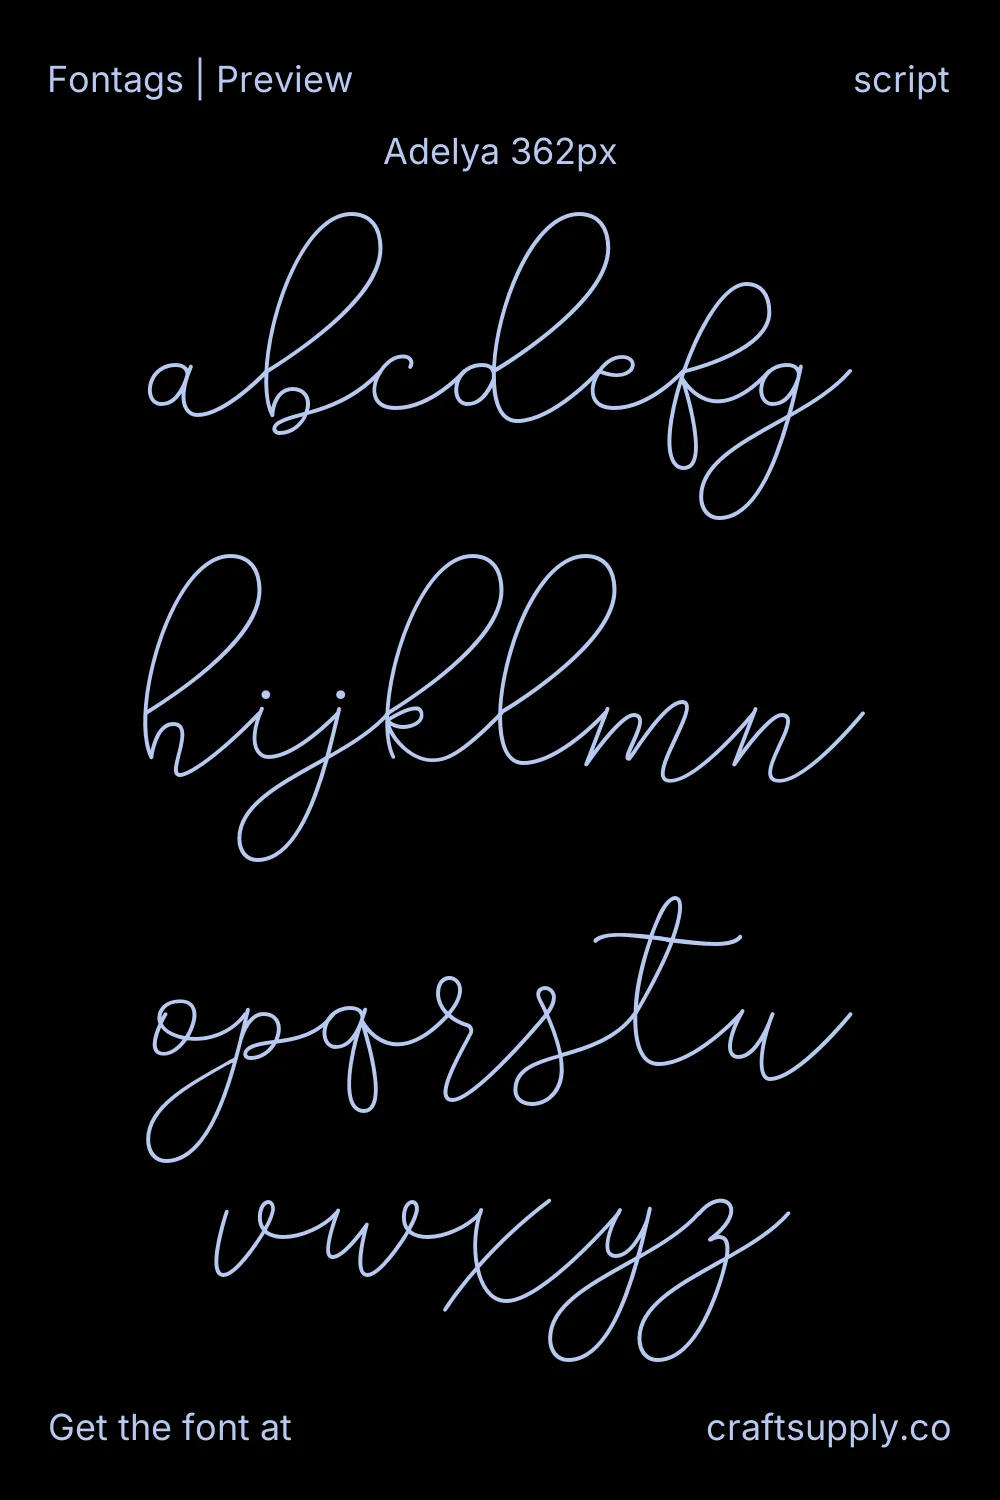 Fontags | Preview
script
Adelya 362px
abcdefg
hijklmn
opqrstu
vwxyz
Get the font at
craftsupply.co